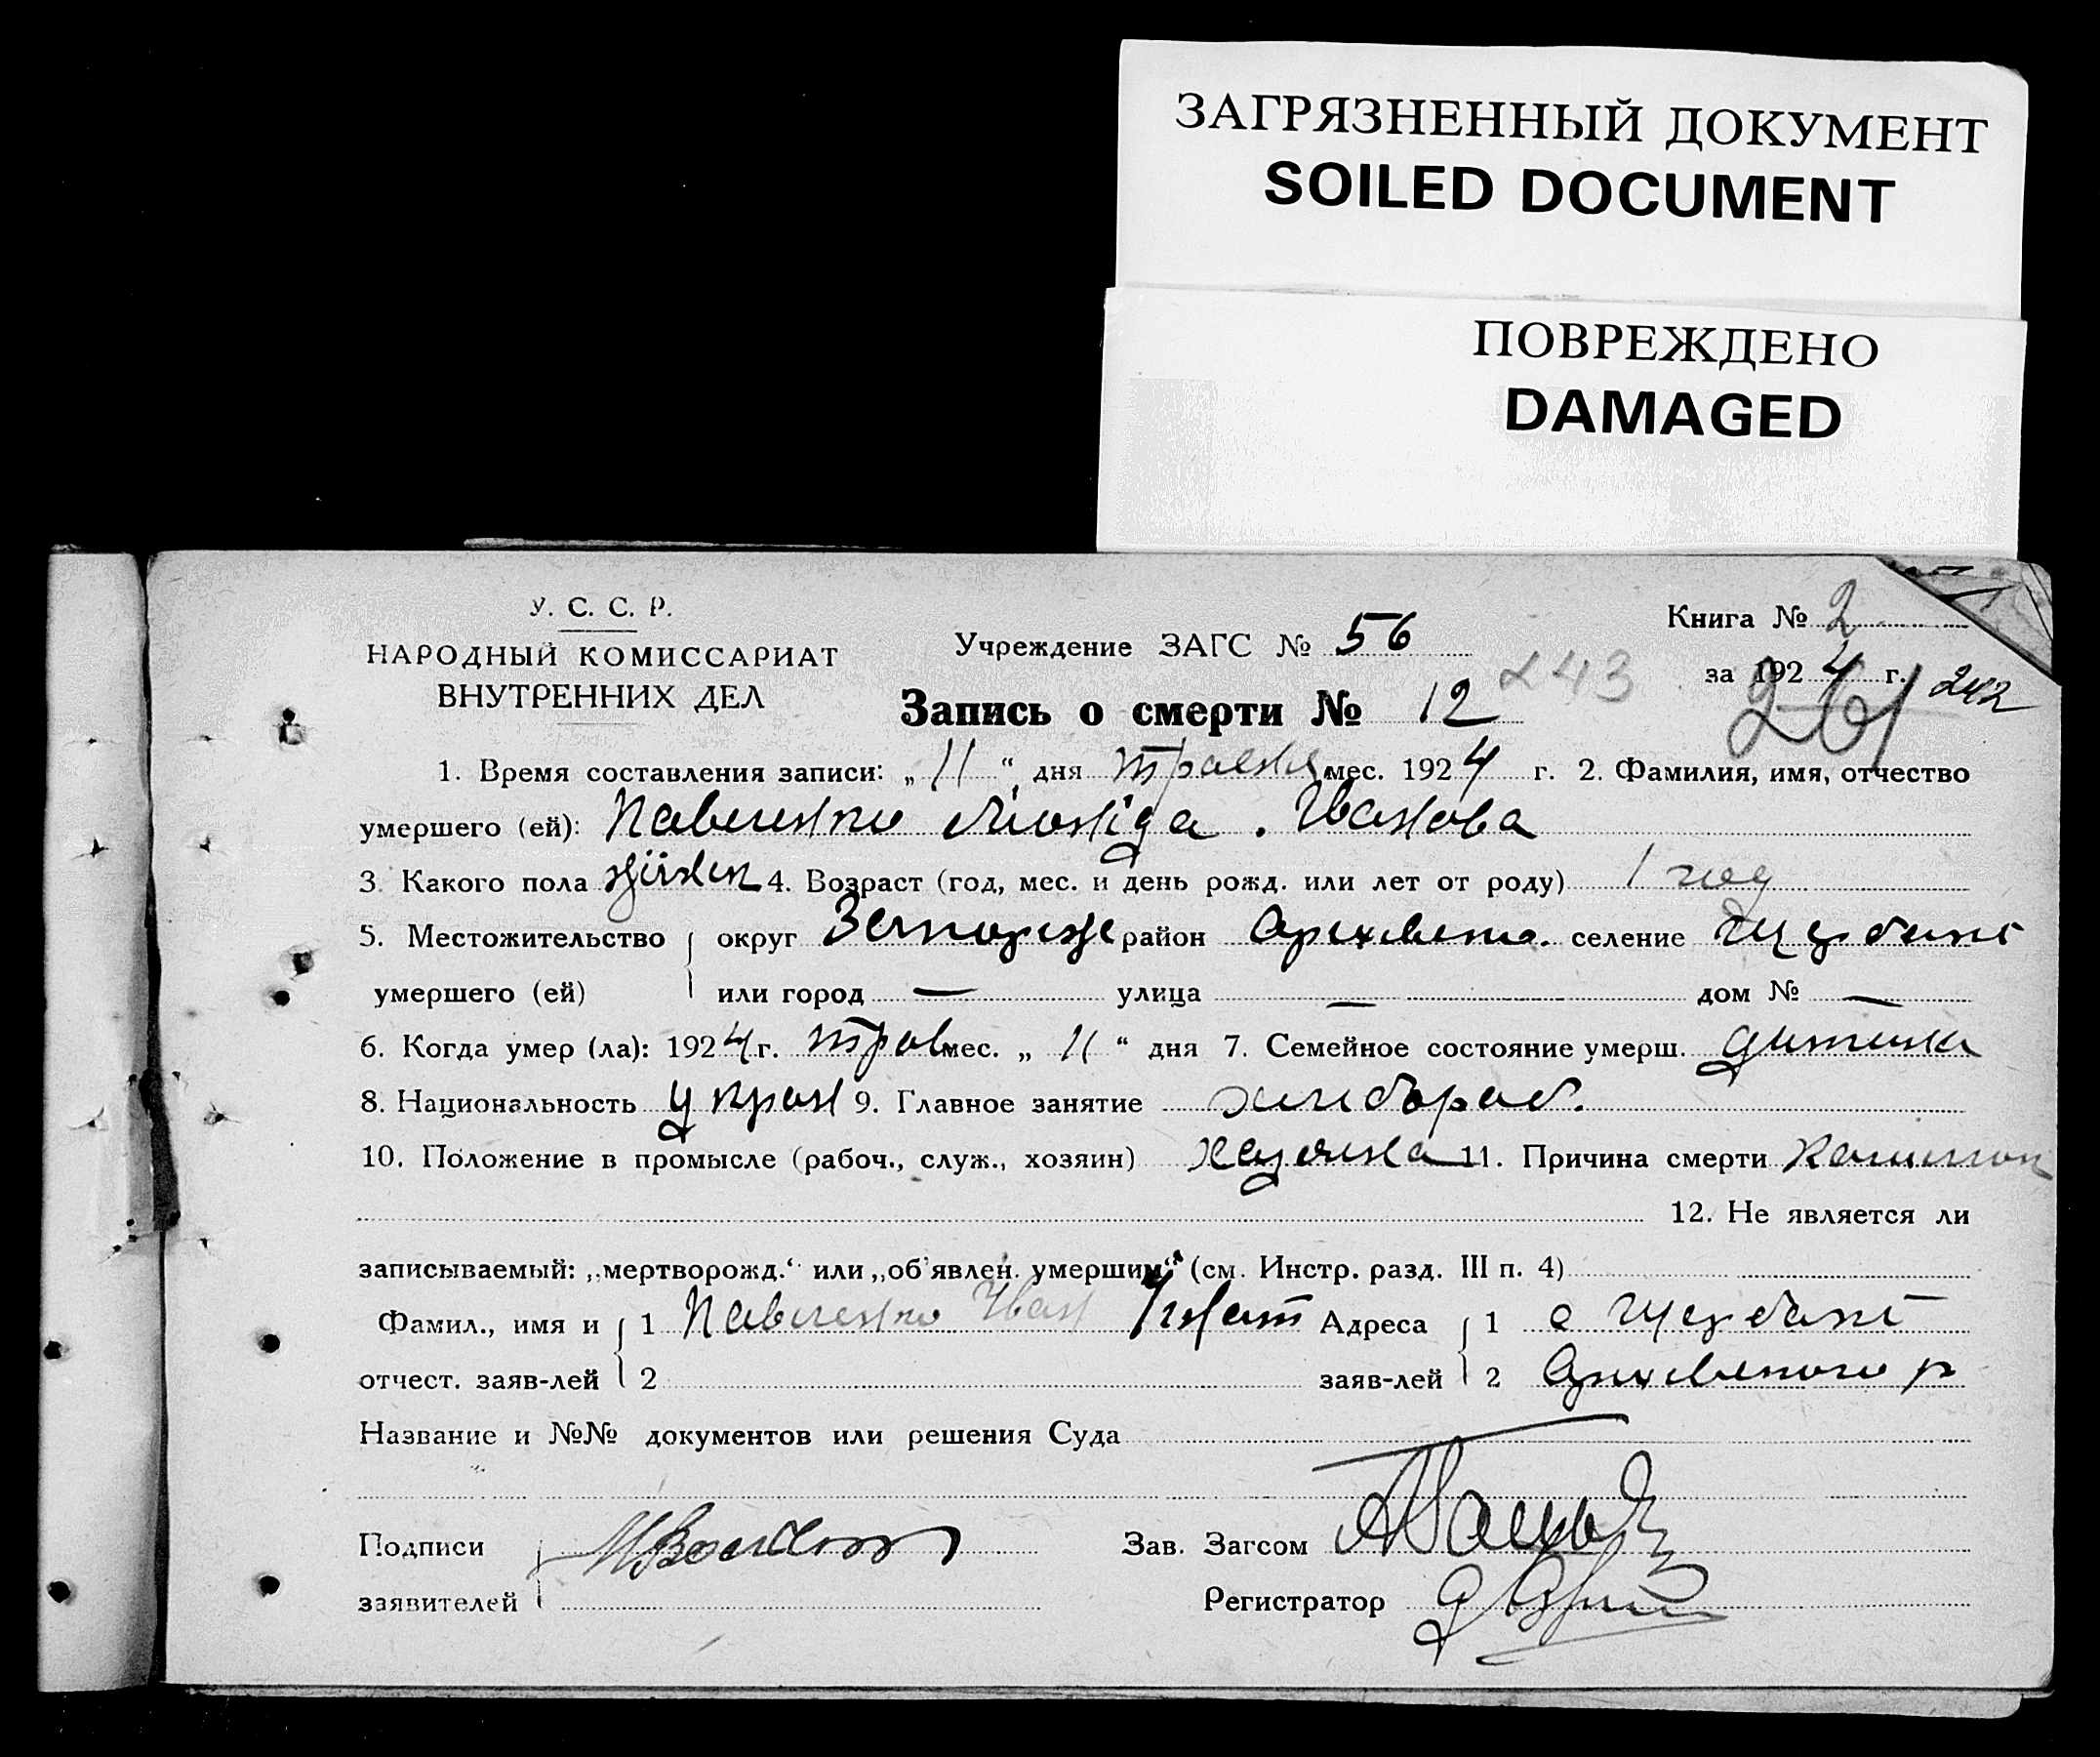 ЗАГРЯЗНЕННЫЙ ДОКУМЕНТ
SOILED DOCUMENT
ПОВРЕЖДЕНО
DAMAGED
У. С. С. Р.
НАРОДНЫЙ КОМИССАРИАТ
ВНУТРЕННИХ ДЕЛ
Учреждение ЗАГС № 56
Книга № 2
за 1924 г. 242
243
261
Запись о смерти № 12
1. Время составления записи: „ 11 “ дня травня мес. 1924 г. 2. Фамилия, имя, отчество
умершего (ей): Павленко Ивановa
3. Какого пола жіноч 4. Возраст (год, мес. и день рожд. или лет от роду) 1 год
5. Местожительство округ район селение
умершего (ей) или город — улица — дом № —
6. Когда умер (ла): 1924 г. трав мес. „ 11 “ дня 7. Семейное состояние умерш. дитина
8. Национальность укран 9. Главное занятие хлибораб.
10. Положение в промысле (рабоч., служ., хозяин) 11. Причина смерти
12. Не является ли
записываемый: „мертворожд.“ или „об'явлен. умершим“ (см. Инстр. разд. III п. 4)
Фамил., имя и 1 Павленко Иван Адреса 1 с
отчест. заяв-лей 2 заяв-лей 2
Название и №№ документов или решения Суда
Подписи Зав. Загсом
заявителей Регистратор